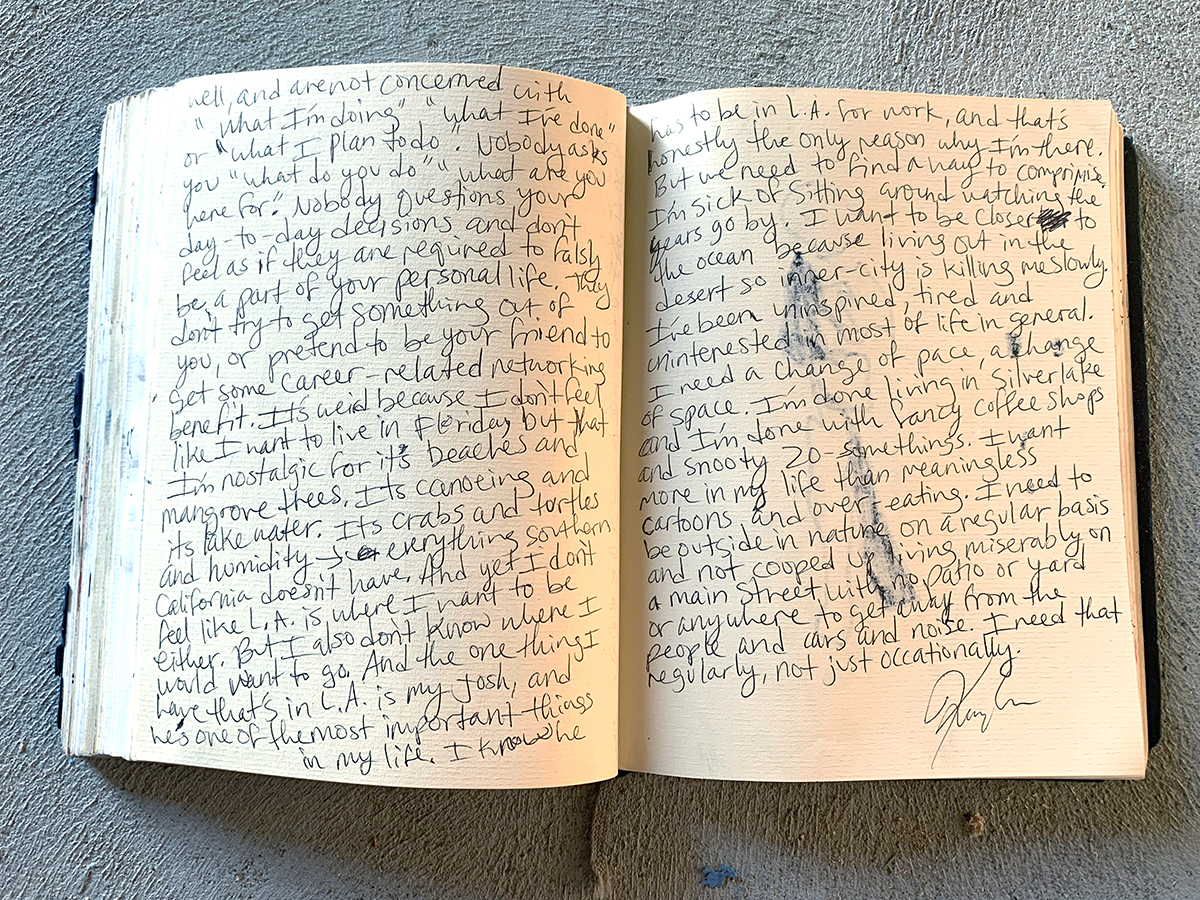 well, and are not concerned with
"what I'm doing" "what I've done"
or "what I plan to do". Nobody asks
you "what do you do" "what are you
here for." Nobody questions your
day-to-day decisions and don't
feel as if they are required to falsly
be a part of your personal life. They
don't try to get something out of
you, or pretend to be your friend to
get some career-related networking
benefit. It's weird because I don't feel
like I want to live in Florida, but that
I'm nostalgic for it's beaches and
mangrove trees. Its canoeing and
its lake water. Its crabs and turtles
and humidity → everything southern
California doesn't have. And yet I don't
feel like L.A. is where I want to be
either. But I also don't know where I
would want to go. And the one thing I
have that's in L.A. is my Josh, and
he's one of the most important things
in my life. I know he
has to be in L.A. for work, and that's
honestly the only reason why I'm there.
But we need to find a way to comprimise.
I'm sick of sitting around watching the
years go by. I want to be closer to
the ocean because living out in the
desert so inner-city is killing me slowly.
I've been uninspired, tired and
uninterested in most of life in general.
I need a change of pace, a change
of space. I'm done living in Silverlake
and I'm done with fancy coffee shops
and snooty 20-somethings. I want
more in my life than meaningless
cartoons and over-eating. I need to
be outside in nature on a regular basis
and not cooped up living miserably on
a main street with no patio or yard
or anywhere to get away from the
people and cars and noise. I need that
regularly, not just occationally.